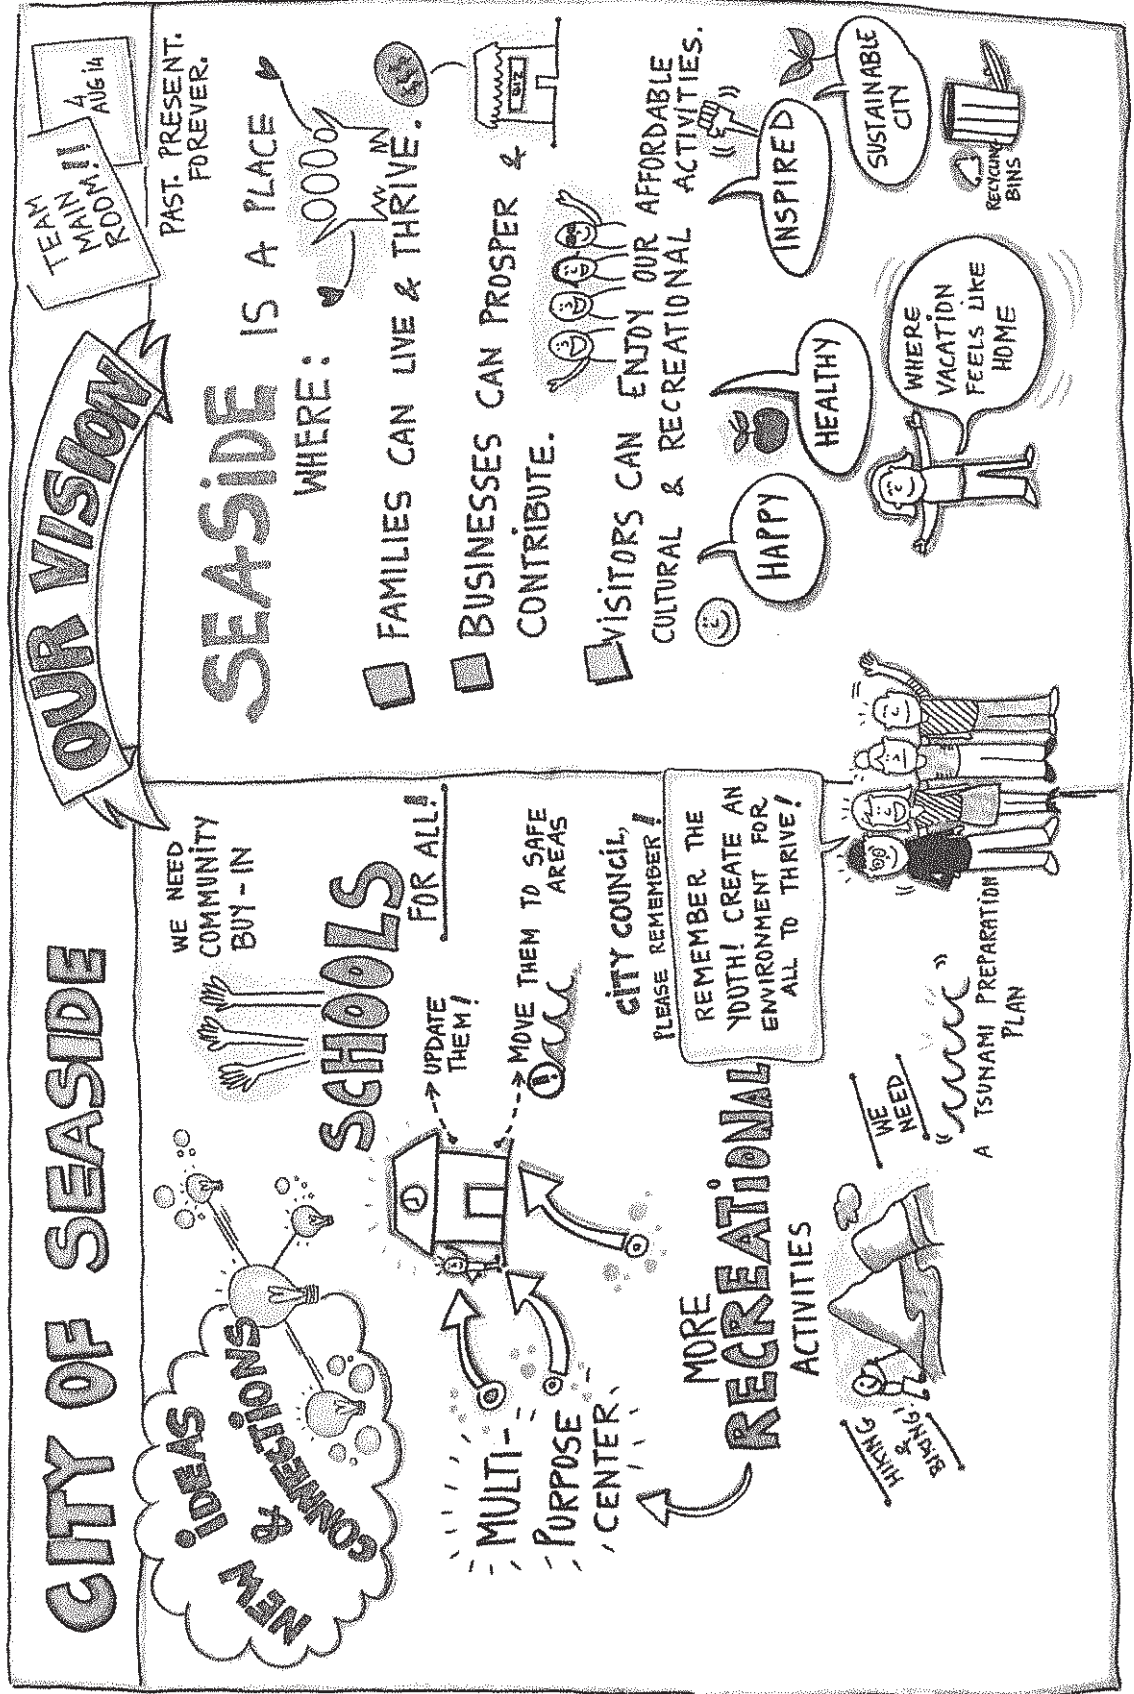 CITY OF SEASIDE
OUR VISION
TEAM
MAIN
ROOM!!
4
AUG 14
NEW IDEAS
&
CONNECTIONS
WE NEED
COMMUNITY
BUY-IN
SCHOOLS
FOR ALL!
UPDATE
THEM!
MOVE THEM TO SAFE
AREAS
!
MULTI-
PURPOSE
CENTER
MORE
RECREATIONAL
ACTIVITIES
HIKING
&
BIKING!
CITY COUNCIL,
PLEASE REMEMBER!
REMEMBER THE
YOUTH! CREATE AN
ENVIRONMENT FOR
ALL TO THRIVE!
WE
NEED
A TSUNAMI PREPARATION
PLAN
PAST. PRESENT.
FOREVER.
SEASIDE IS A PLACE
WHERE:
FAMILIES CAN LIVE & THRIVE.
BUSINESSES CAN PROSPER &
CONTRIBUTE.
BIZ
VISITORS CAN ENJOY OUR AFFORDABLE
CULTURAL & RECREATIONAL ACTIVITIES.
HAPPY
HEALTHY
INSPIRED
SUSTAINABLE
CITY
WHERE
VACATION
FEELS LIKE
HOME
RECYCLING
BINS